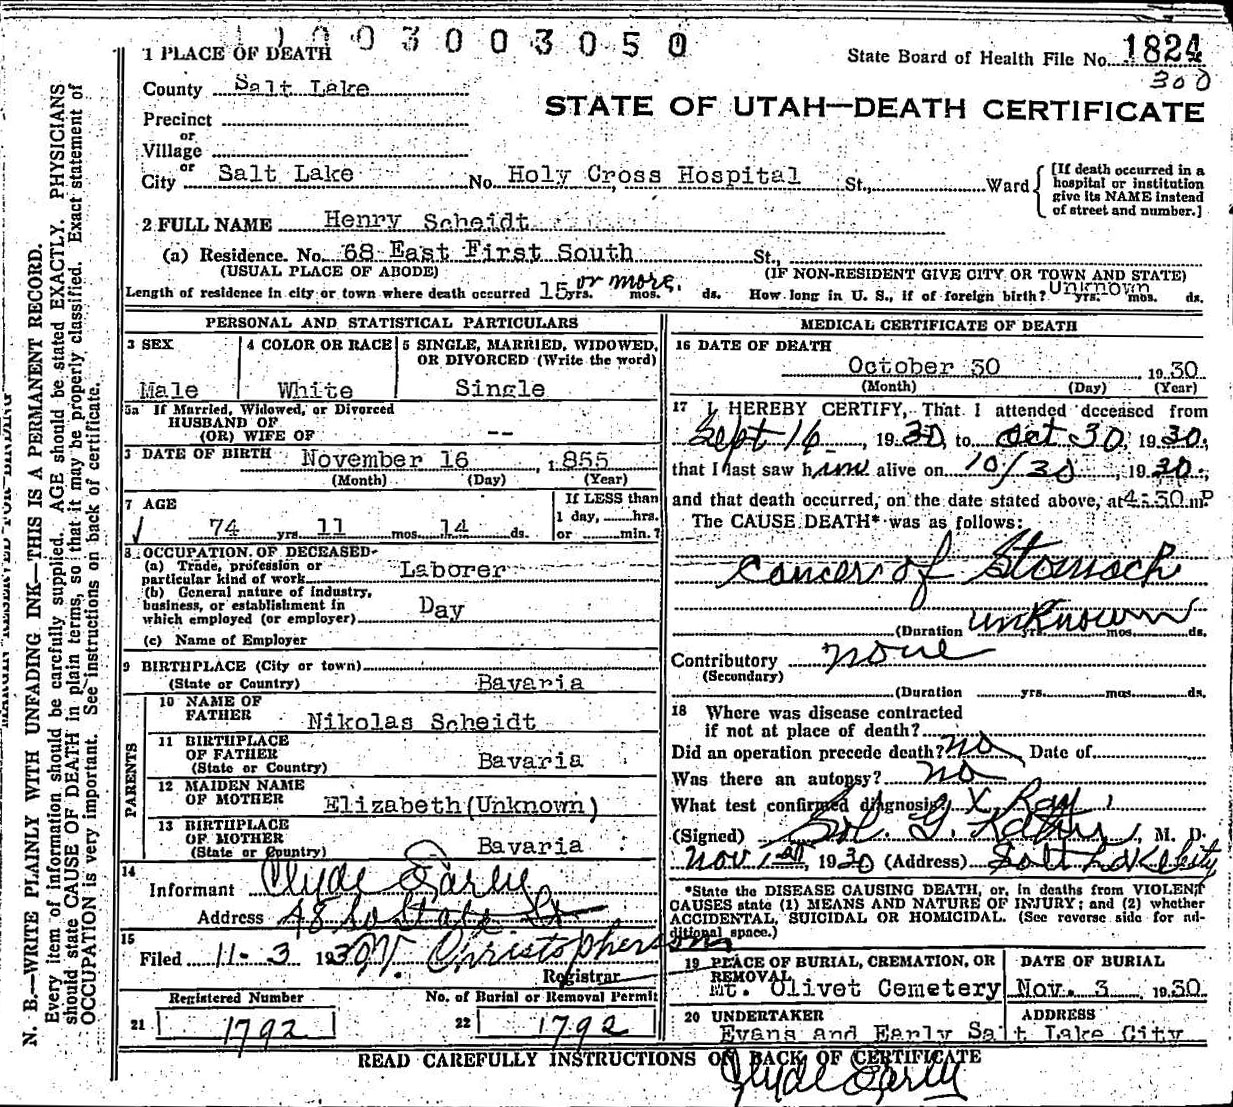 1003003050
State Board of Health File No. 1824
300
STATE OF UTAH—DEATH CERTIFICATE
1 PLACE OF DEATH
County Salt Lake
Precinct
or
Village
or
City Salt Lake No. Holy Cross Hospital St., Ward
[If death occurred in a
hospital or institution
give its NAME instead
of street and number.]
2 FULL NAME Henry Scheidt
(a) Residence. No. 68 East First South St.,
(USUAL PLACE OF ABODE) (IF NON-RESIDENT GIVE CITY OR TOWN AND STATE)
Length of residence in city or town where death occurred 15 yrs. or more. mos. ds. How long in U. S., if of foreign birth? Unknown yrs. mos. ds.
PERSONAL AND STATISTICAL PARTICULARS
3 SEX 4 COLOR OR RACE 5 SINGLE, MARRIED, WIDOWED,
OR DIVORCED (Write the word)
Male White Single
5a If Married, Widowed, or Divorced
HUSBAND OF
(OR) WIFE OF --
DATE OF BIRTH November 16, 1855
(Month) (Day) (Year)
7 AGE If LESS than
1 day, hrs.
74 yrs. 11 mos. 14 ds. or min.?
8 OCCUPATION OF DECEASED
(a) Trade, profession or
particular kind of work Laborer
(b) General nature of industry,
business, or establishment in
which employed (or employer) Day
(c) Name of Employer
9 BIRTHPLACE (City or town)
(State or Country) Bavaria
PARENTS
10 NAME OF
FATHER Nikolas Scheidt
11 BIRTHPLACE
OF FATHER
(State or Country) Bavaria
12 MAIDEN NAME
OF MOTHER Elizabeth (Unknown)
13 BIRTHPLACE
OF MOTHER
(State or Country) Bavaria
14
Informant Clyde Early
Address 48 So State St
15
Filed 11-3 1930 Christopherson
Registrar
Registered Number No. of Burial or Removal Permit
21 1792 22 1792
MEDICAL CERTIFICATE OF DEATH
16 DATE OF DEATH
October 30 1930
(Month) (Day) (Year)
17 I HEREBY CERTIFY, That I attended deceased from
Sept 16, 1930, to Oct 30, 1930,
that I last saw him alive on 10/30, 1930,
and that death occurred, on the date stated above, at 4:30 m P
The CAUSE DEATH* was as follows:
Cancer of Stomach
(Duration unknown yrs. mos. ds.
Contributory none
(Secondary)
(Duration yrs. mos. ds.
18 Where was disease contracted
if not at place of death?
Did an operation precede death? no Date of
Was there an autopsy? no
What test confirmed diagnosis? X Ray
(Signed) Sol. G. M. D.
Nov 1st, 1930 (Address) Salt Lake City
*State the DISEASE CAUSING DEATH, or, in deaths from VIOLENT
CAUSES state (1) MEANS AND NATURE OF INJURY; and (2) whether
ACCIDENTAL, SUICIDAL OR HOMICIDAL. (See reverse side for ad-
ditional space.)
19 PLACE OF BURIAL, CREMATION, OR DATE OF BURIAL
REMOVAL
Mt. Olivet Cemetery Nov. 3 1930
20 UNDERTAKER ADDRESS
Evans and Early Salt Lake City
READ CAREFULLY INSTRUCTIONS ON BACK OF CERTIFICATE
Clyde Early
N. B.—WRITE PLAINLY WITH UNFADING INK—THIS IS A PERMANENT RECORD.
Every item of information should be carefully supplied. AGE should be stated EXACTLY. PHYSICIANS
should state CAUSE OF DEATH in plain terms, so that it may be properly classified. Exact statement of
OCCUPATION is very important. See instructions on back of certificate.